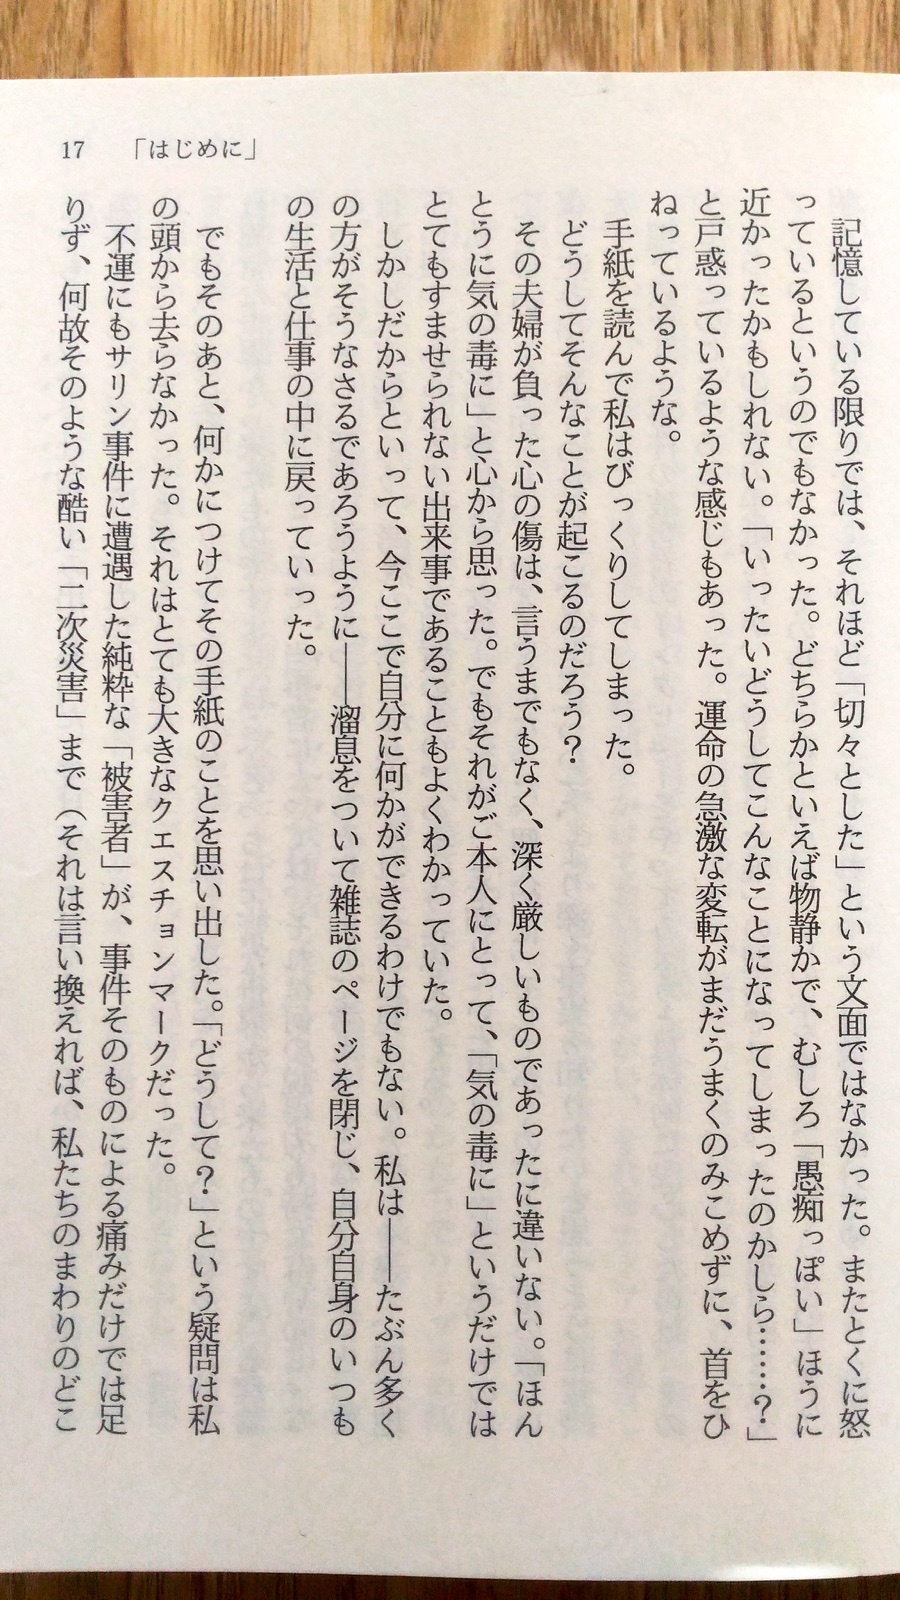 17 「はじめに」
記憶している限りでは、それほど「切々とした」という文面ではなかった。またとくに怒
っているというのでもなかった。どちらかといえば物静かで、むしろ「愚痴っぽい」ほうに
近かったかもしれない。「いったいどうしてこんなことになってしまったのかしら……？」
と戸惑っているような感じもあった。運命の急激な変転がまだうまくのみこめずに、首をひ
ねっているような。
手紙を読んで私はびっくりしてしまった。
どうしてそんなことが起こるのだろう？
その夫婦が負った心の傷は、言うまでもなく、深く厳しいものであったに違いない。「ほん
とうに気の毒に」と心から思った。でもそれがご本人にとって、「気の毒に」というだけでは
とてもすませられない出来事であることもよくわかっていた。
しかしだからといって、今ここで自分に何かができるわけでもない。私は――たぶん多く
の方がそうなさるであろうように――溜息をついて雑誌のページを閉じ、自分自身のいつも
の生活と仕事の中に戻っていった。
でもそのあと、何かにつけてその手紙のことを思い出した。「どうして？」という疑問は私
の頭から去らなかった。それはとても大きなクエスチョンマークだった。
不運にもサリン事件に遭遇した純粋な「被害者」が、事件そのものによる痛みだけでは足
りず、何故そのような酷い「二次災害」まで（それは言い換えれば、私たちのまわりのどこ